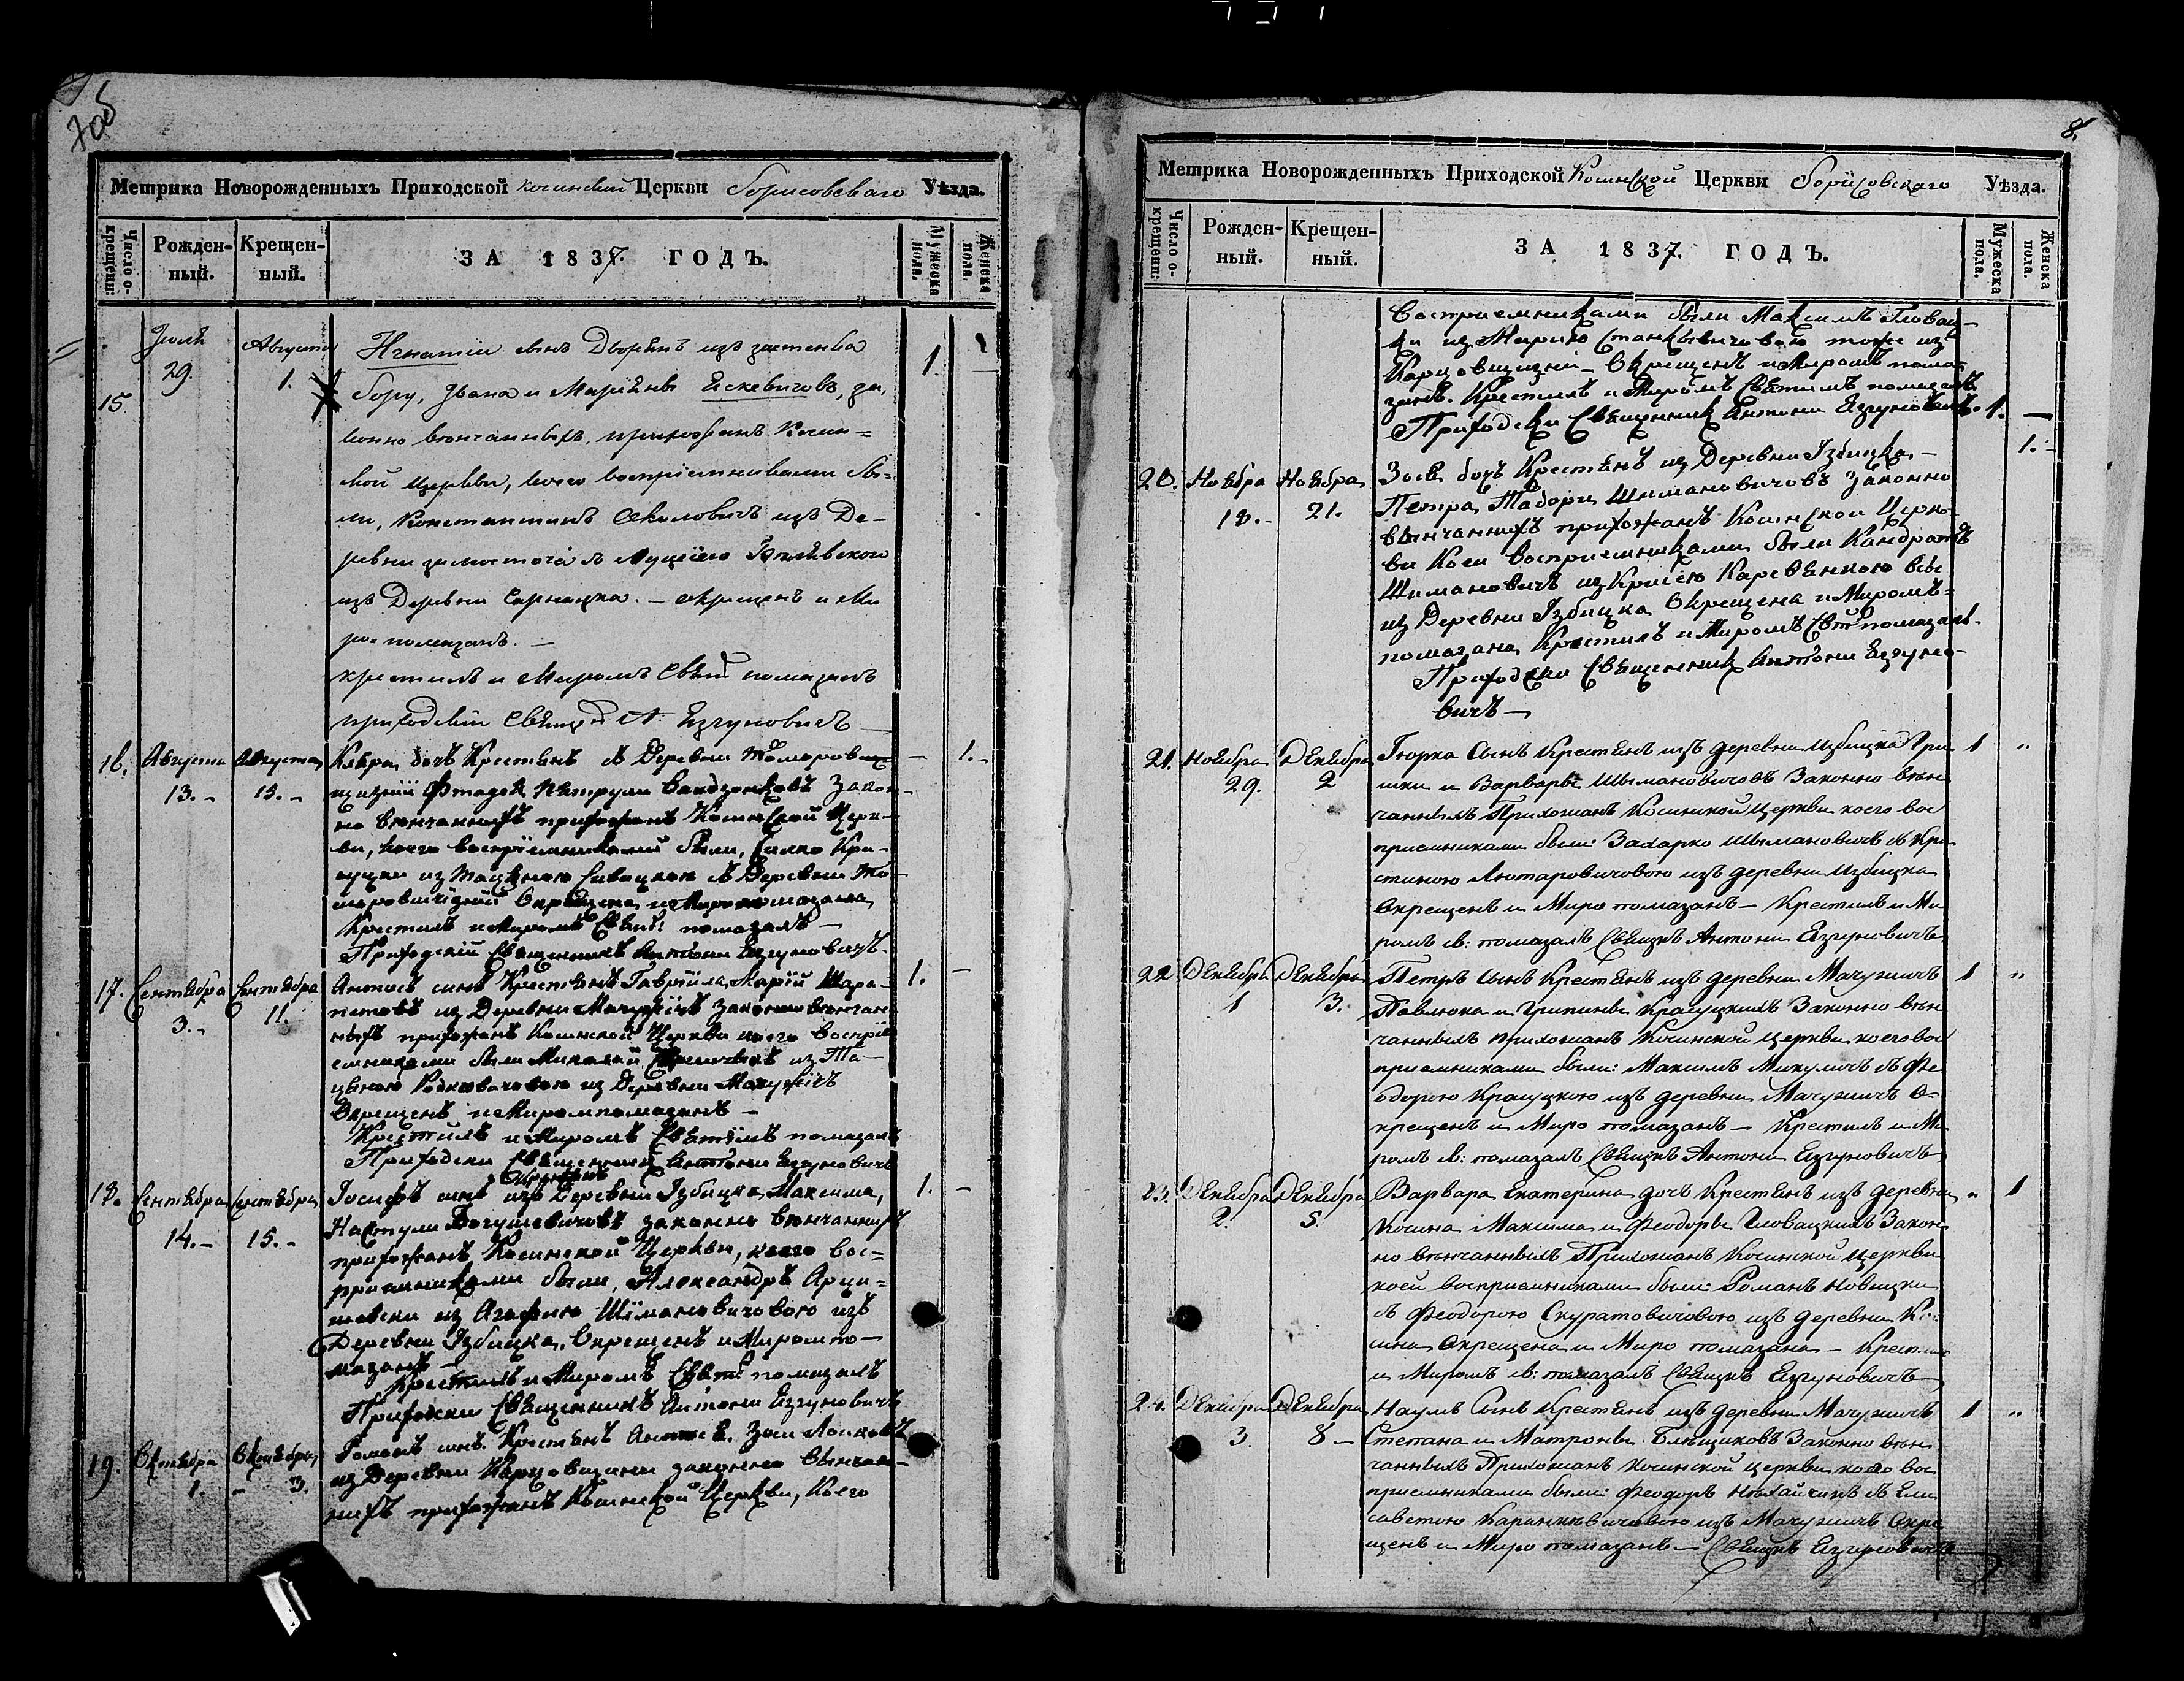 7об
Метрика Новорожденныхъ Приходской Косинской Церкви Борисовскаго Уѣзда.
Число о-крещенн:
Рожден-ный.
Крещен-ный.
ЗА 1837. ГОДЪ.
Мужеска пола.
Женска пола.
15.
Іюля 29.
Августа 1.
Игнатіи сынъ Дворянъ изъ застенка
Бору, Ивана и Маріяны Ескевичовъ, за,
конно вѣнчанныхъ, прихожанъ Косин=
ской Церкви, коего воспріемниками бы=
ли, Константинъ Околовичъ изъ Де-
ревни съ Луціею
изъ Деревни – окрещенъ и Ми
ро=помазанъ. –
крестилъ и Миромъ Свят помазалъ
приходскій Свящ А. Езгуновичъ
1
16.
Августа 13.-
Августа 15.-
дочь Крестянъ съ Деревни
Закон-
но вѣнчанныхъ прихожанъ Косинской Церк-
ви, коего воспріемниками были,
съ Деревни
Окрещена и Миропомазана
Крестилъ и Миромъ Свят: помазалъ –
Приходскій Священникъ Антони Езгуновичъ.
– 1.-
17.
Сентября 3.-
Сентября 11.
Антось синъ Крестянъ Гавріила, Маріи
изъ Деревни Мачужичъ законно вѣнчан
ныхъ прихожанъ Косинской Церкви коего воспріе
емниками были Миколай из Та-
цяною из Деревни Мачужичъ
Окрещенъ и Миромпомазанъ –
Крестилъ и Миромъ Святымъ помазалъ
Приходски Священникъ Антони Езгуновичъ
1. –
18.
Сентября 14.-
Сентября 15.-
Крестянъ
Іосифъ синъ изъ Деревни Избицка Максима,
Настули Богушевичовъ законно вѣнчаннихъ
прихожанъ Косинской Церкви, коего вос=
приемниками были, Александръ Арци=
шевски из Агафию Шимановичовою изъ
Деревни Избицка. Окрещенъ и Миромпо-
мазанъ –
Крестилъ и Миромъ Свят: помазалъ
Приходски Священникъ Антони Езгуновичъ
1. –
19.
Октября 1.
Октября 3.
Романъ синъ Крестянъ
из Деревни законно вѣнчан-
нихъ прихожанъ Косинской Церкви, Коего
8.
Метрика Новорожденныхъ Приходской Косинской Церкви Борисовскаго Уѣзда.
Число о-крещенн:
Рожден-ный.
Крещен-ный.
ЗА 1837. ГОДЪ.
Мужеска пола.
Женска пола.
Восприемниками были Максимъ Гловац-
ки из Марию Станкѣвичовою тоже из
– Окрещенъ и Миромъ пома-
занъ. Крестилъ и Миромъ Святимъ помазалъ
Приходски Священникъ Антони Езгуновичъ. 1. –
20.
Ноября 18.-
Ноября 21.
дочъ Крестянъ из Деревни Избицка –
Петра, Тадори Шимановичовъ законно
вѣнчаннихъ прихожанъ Косинской Церк-
ви Коеи восприемниками были Кандратъ
Шимановичъ из всѣ
из Деревни Избицка Окрещена и Миромъ=
помазана Крестилъ и Миромъ Свтъ помазалъ.
Приходски Священникъ Антони Езгуно-
вичъ –
1.-
21.
Ноября 29.
Декабря 2
Гюрка Сынъ Крестянъ изъ деревни Избицка Гри
шки и Варвары Шымановичовъ Законно вѣн
чанныхъ Прихожанъ Косинской Церкви коего вос
приемниками были: Захарко Шымановичъ съ Кри
стиною Лютаровичовою изъ деревни Избицка
Окрещенъ и Миро помазанъ – Крестилъ и Ми
ромъ св: помазалъ Свящнъ Антони Езгуновичъ
1 „
22
Декабря 1
Декабря 3.
Петръ Сынъ Крестянъ изъ деревни Мачужичъ
Павлюка и Грипины Красуцкихъ Законно вѣн
чанныхъ прихожанъ Косинской Церкви коего вос
приемниками были: Максимъ Микуличъ съ Фе
одорою Красуцкою изъ деревни Мачужичъ О-
крещенъ и Миро помазанъ – Крестилъ и Ми
ромъ св: помазалъ Свящнъ Антони Езгуновичъ
1 „
23.
Декабря 2.
Декабря 5.
Варвара Екатерина дочъ Крестянъ изъ деревни
Косина Максима и Феодоры Гловацкихъ Закон
но вѣнчанныхъ Прихожанъ Косинской Церкви
коей восприемниками были: Романъ Новицки
съ Феодорою Скуратовичовою изъ деревни Ко
сина Окрещена и Миро помазана – Крестил
и Миромъ св: помазалъ Свящнъ Езгуновичъ
„ 1
24.
Декабря 3.
Декабря 8 –
Наумъ Сынъ Крестянъ изъ деревни Мачужичъ
Степана и Матроны Законно вѣн
чанныхъ Прихожанъ Косинской Церкви коего вос
приемниками были: Феодоръ съ Ели
саветою изъ Мачужичъ Окре
щенъ и Миро помазанъ – Свящнъ Езгуновичъ
1 „